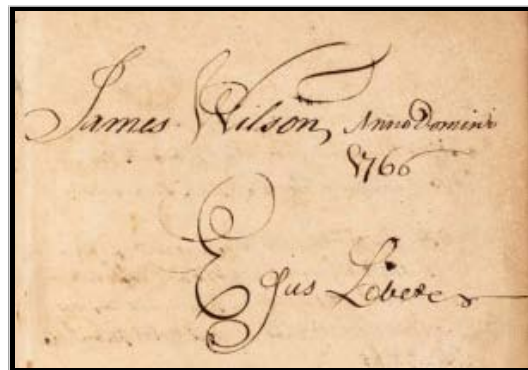 James Wilson, Anno Domini
1766
Ejus